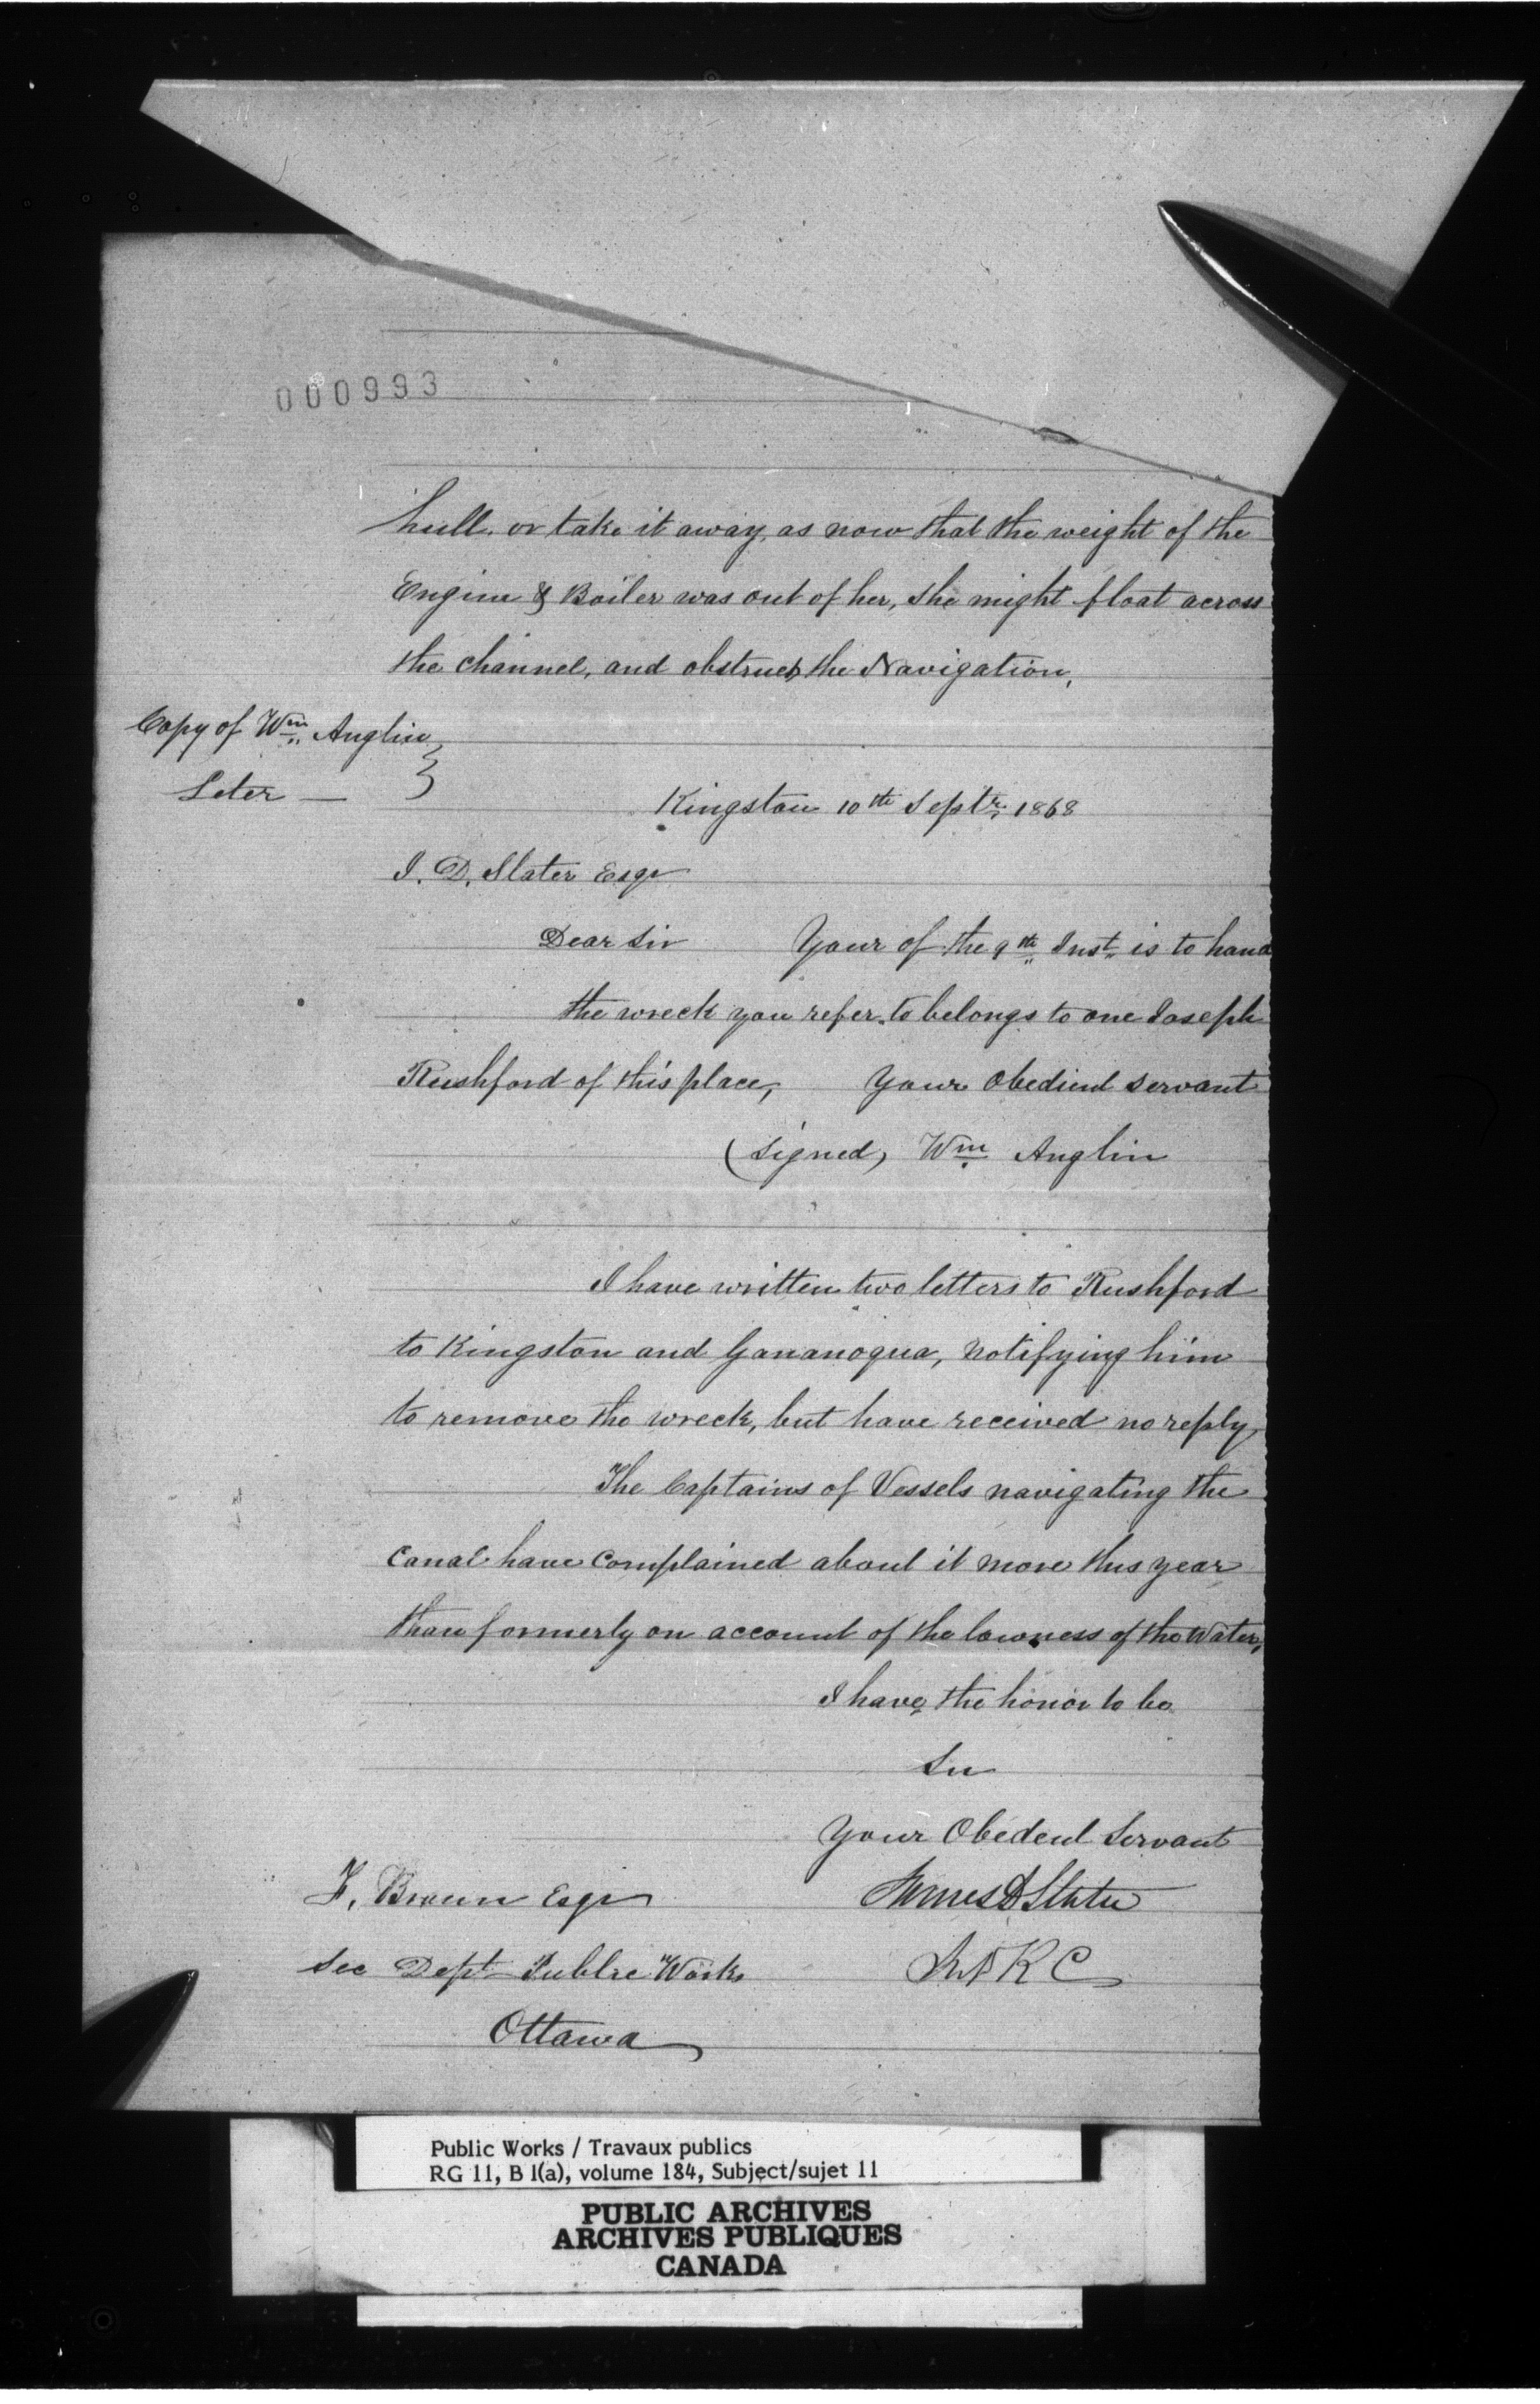 000993
hull, or take it away, as now that the weight of the
Engine & Boiler was out of her, she might float across
the channel, and obstruct the Navigation,
Copy of Wm Anglin
Leter —
Kingston 10th Septr 1868
J. D. Slater Esqr
Dear Sir Your of the 9th Inst is to hand
the wreck you refer to belongs to one Joseph
Rushford of this place, Your Obedient servant
(signed) Wm Anglin
I have written two letters to Rushford
to Kingston and Gananoqua, notifying him
to remove the wreck, but have received no reply
The Captains of Vessels navigating the
Canal have complained about it more this year
than formerly on account of the lowness of the Water,
I have the honor to be
Sir
Your Obedent Servant
F. Braun Esqr James D Slater
Sec Dept Public Works
Ottawa
Public Works / Travaux publics
RG 11, B 1(a), volume 184, Subject/sujet 11
PUBLIC ARCHIVES
ARCHIVES PUBLIQUES
CANADA